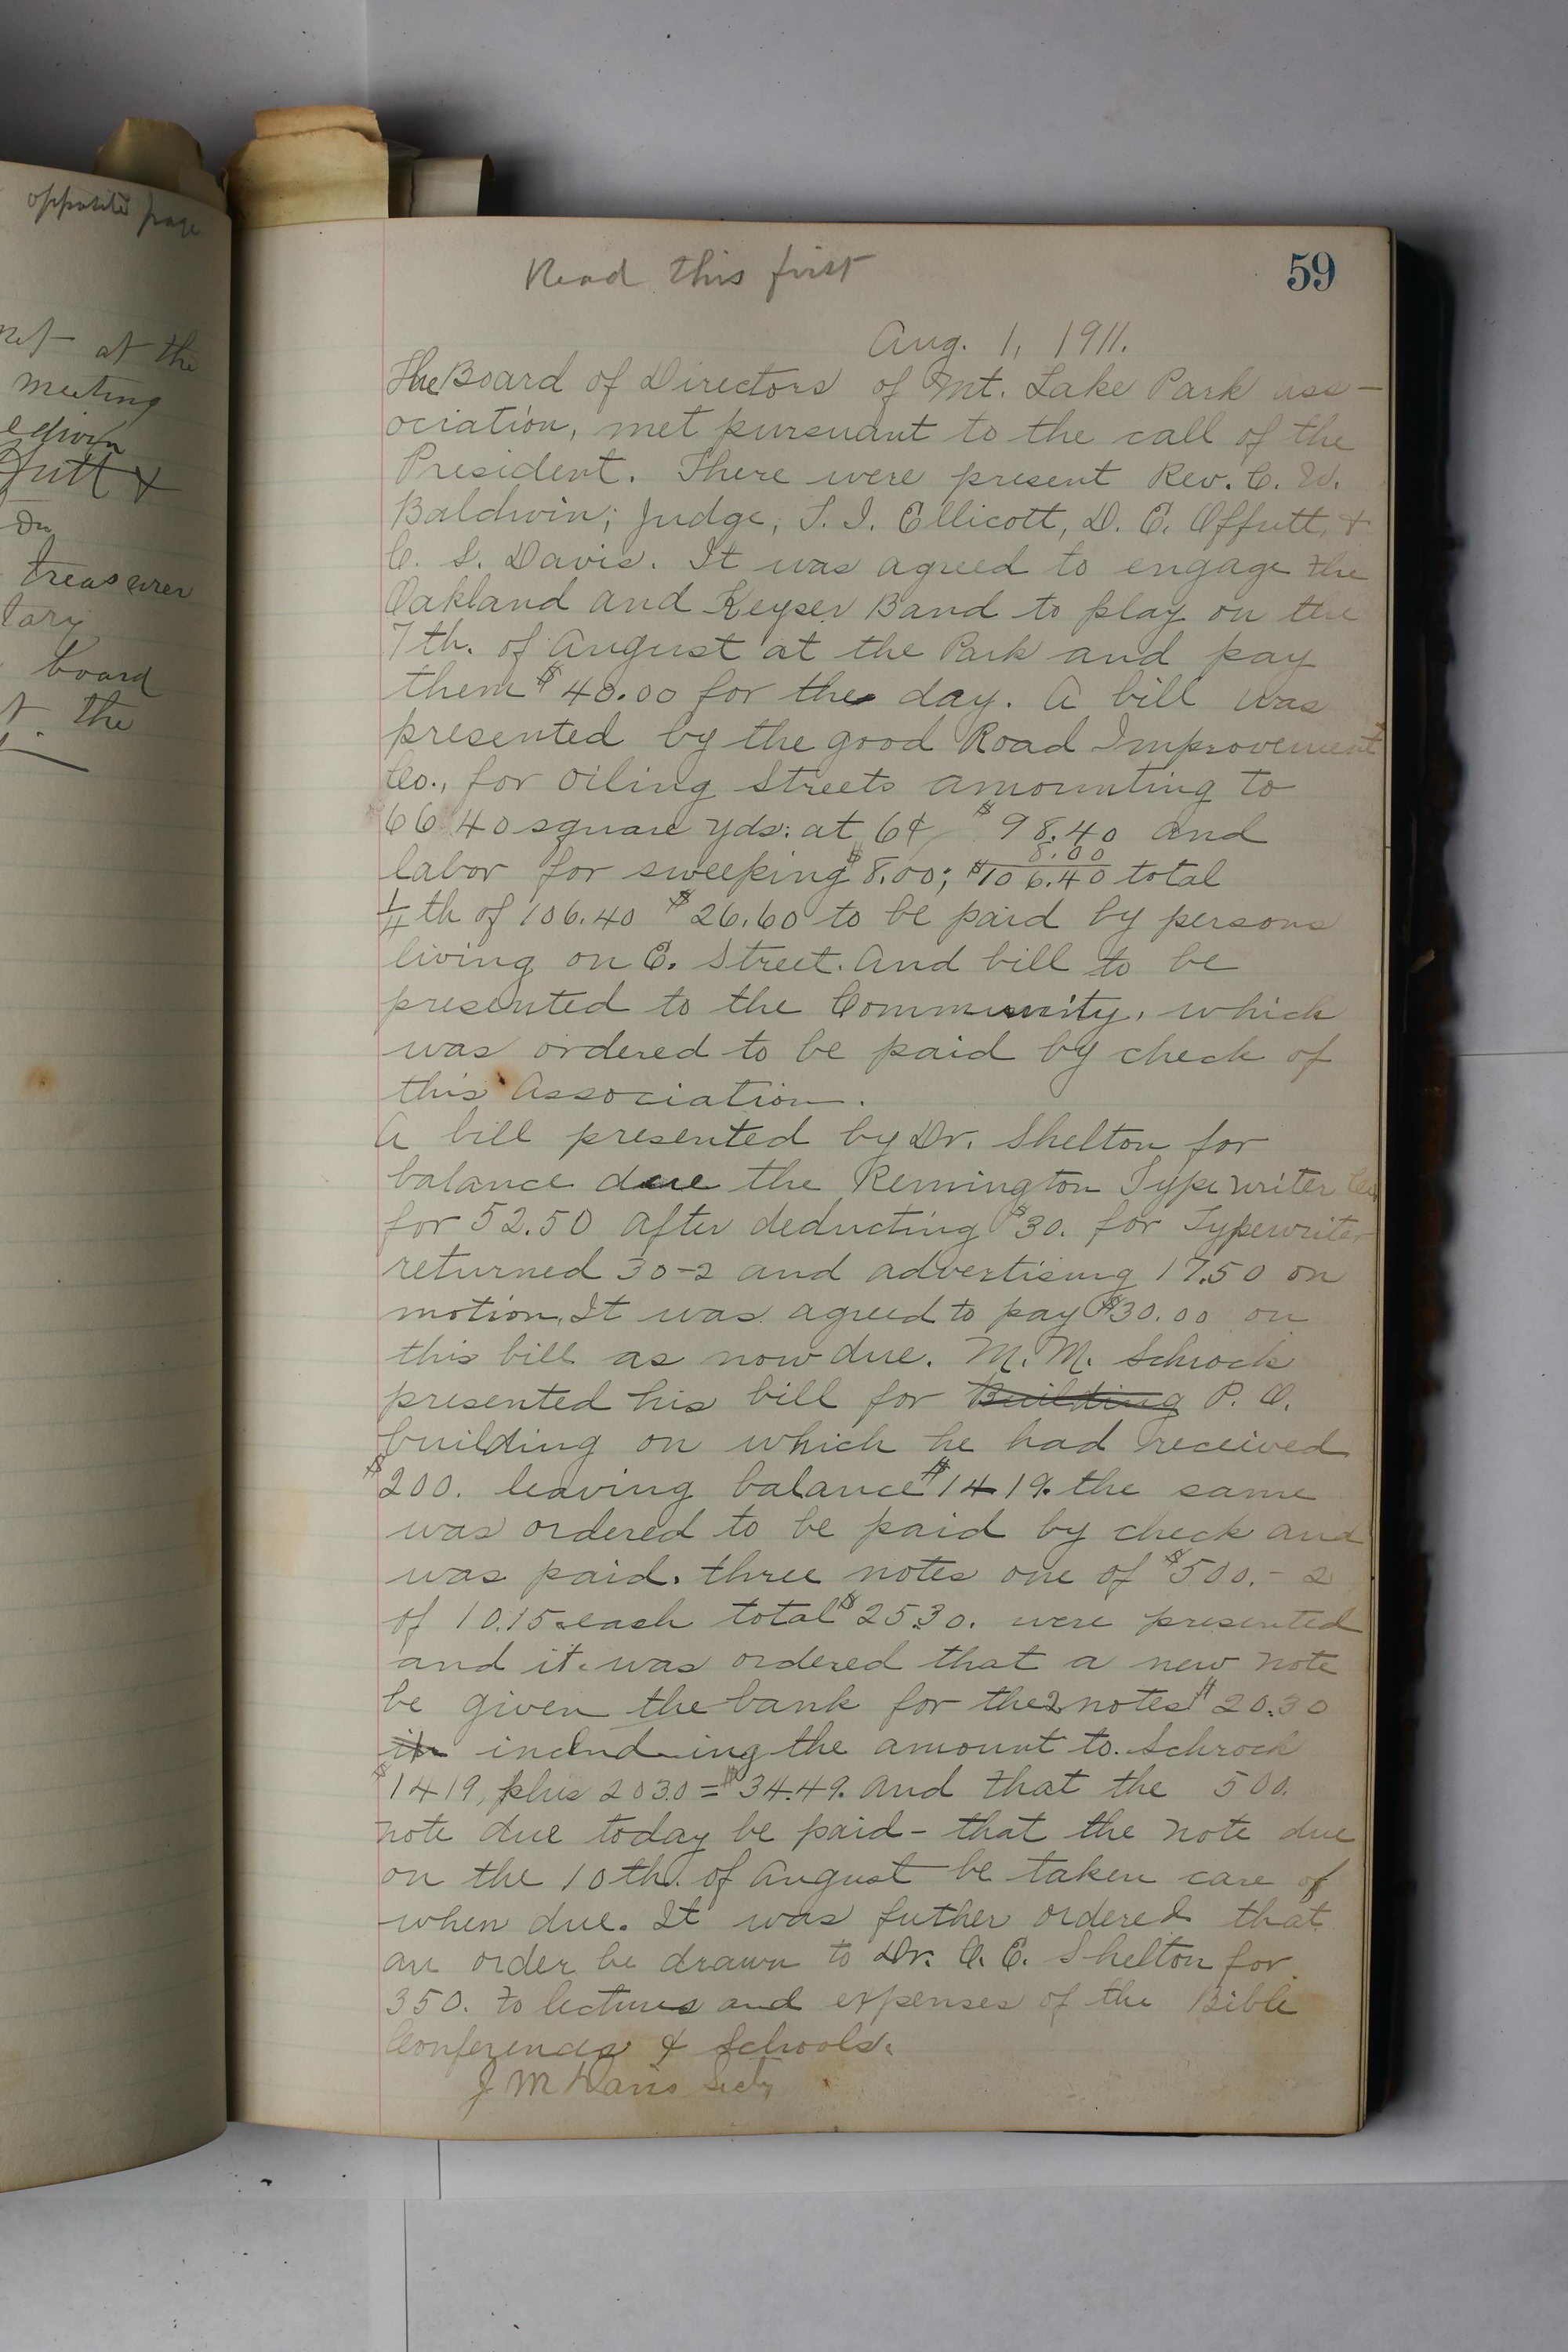 opposite page
at the
meeting
Treasurer
board
the
Read this first
59
Aug. 1, 1911.
The Board of Directors of Mt. Lake Park Ass-
ociation, met pursuant to the call of the
President. There were present Rev. C. W.
Baldwin; Judge, S. I. Ellicott, D. E. Offutt, &
C. S. Davis. It was agreed to engage the
Oakland and Keyser Band to play on the
7th. of August at the Park and pay
them $40.00 for the day. A bill was
presented by the good Road Improvement
Co., for oiling Streets amounting to
6640 square yds. at 6¢ $98.40 and
8.00
labor for sweeping $8.00; $106.40 total
1/4 th of 106.40 $26.60 to be paid by persons
living on E. Street. And bill to be
presented to the Community, which
was ordered to be paid by check of
this Association.
A bill presented by Dr. Shelton for
balance due the Remington Typewriter Co
for 52.50 after deducting $30. for Typewriter
returned 30-2 and advertising 17.50 on
motion, It was agreed to pay $30.00 on
this bill as now due. M. M. Schrock
presented his bill for Building P. O.
building on which he had received
$200. leaving balance $1419. the same
was ordered to be paid by check and
was paid. three notes one of $500. - 2
of 10.15 each total $25.30. were presented
and it was ordered that a new note
be given the bank for the 2 notes $20.30
including the amount to Schrock
$1419, plus 2030 = $34.49. And that the 500.
note due today be paid - that the note due
on the 10th. of August be taken care of
when due. It was futher ordered that
an order be drawn to Dr. C. E. Shelton for
350. to lectures and expenses of the Bible
Conferences & Schools.
J M Davis Secty